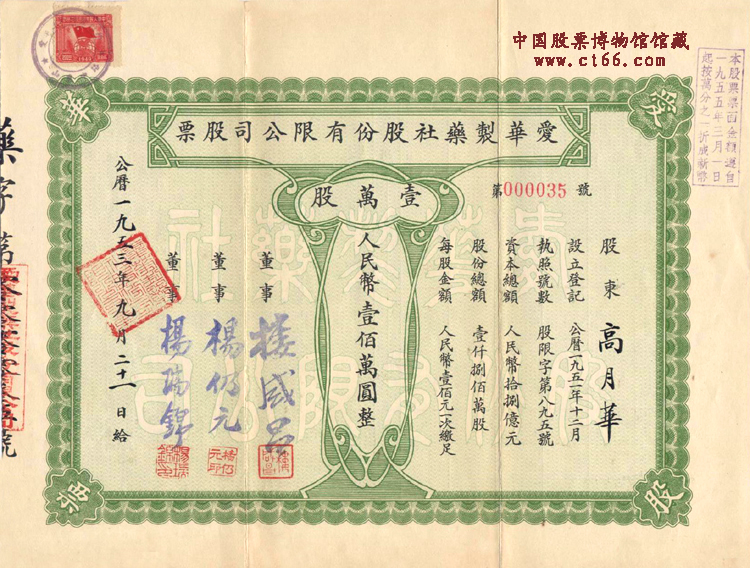 中国股票博物馆馆藏
www.ct66.com
本股票票面金額遵自
一九五五年三月一日
起按萬分之一折成新幣
愛華製藥社股份有限公司股票
愛
華
股
票
第000035號
壹萬股
股東 高月華
設立登記 公曆一九五一年十二月
執照號數 股限字第八九五號
資本總額 人民幣拾捌億元
股份總額 壹仟捌佰萬股
每股金額 人民幣壹佰元一次繳足
人民幣壹佰萬圓整
董事
董事 楊仍元
董事 楊瑞錦
公曆一九五三年九月二十一日給
藥字第
號